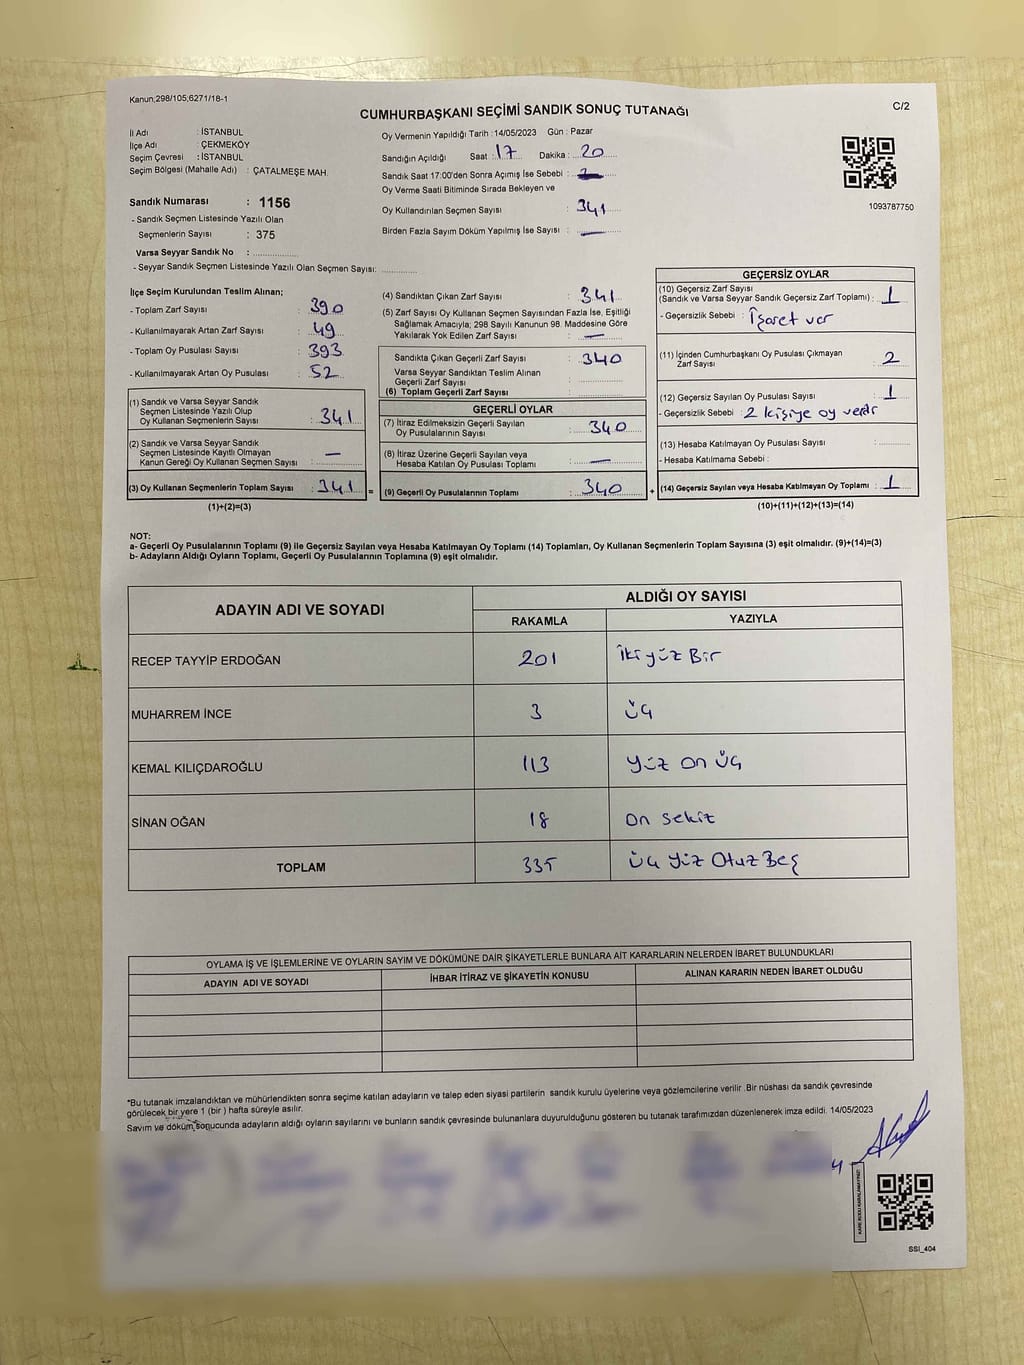 Kanun;298/105;6271/18-1
CUMHURBAŞKANI SEÇİMİ SANDIK SONUÇ TUTANAĞI
C/2
İl Adı : İSTANBUL
İlçe Adı : ÇEKMEKÖY
Seçim Çevresi : İSTANBUL
Seçim Bölgesi (Mahalle Adı) : ÇATALMEŞE MAH.
Sandık Numarası : 1156
- Sandık Seçmen Listesinde Yazılı Olan
Seçmenlerin Sayısı : 375
Varsa Seyyar Sandık No : ..............
- Seyyar Sandık Seçmen Listesinde Yazılı Olan Seçmen Sayısı: ............
Oy Vermenin Yapıldığı Tarih : 14/05/2023 Gün : Pazar
Sandığın Açıldığı Saat : 17 Dakika : 20
Sandık Saat 17:00'den Sonra Açımış İse Sebebi :
Oy Verme Saati Bitiminde Sırada Bekleyen ve
Oy Kullandırılan Seçmen Sayısı : 341
Birden Fazla Sayım Döküm Yapılmış İse Sayısı : —
1093787750
İlçe Seçim Kurulundan Teslim Alınan;
- Toplam Zarf Sayısı : 390
- Kullanılmayarak Artan Zarf Sayısı : 49
- Toplam Oy Pusulası Sayısı : 393
- Kullanılmayarak Artan Oy Pusulası : 52
(1) Sandık ve Varsa Seyyar Sandık
Seçmen Listesinde Yazılı Olup
Oy Kullanan Seçmenlerin Sayısı : 341
(2) Sandık ve Varsa Seyyar Sandık
Seçmen Listesinde Kayıtlı Olmayan
Kanun Gereği Oy Kullanan Seçmen Sayısı : —
(3) Oy Kullanan Seçmenlerin Toplam Sayısı : 341 =
(1)+(2)=(3)
(4) Sandıktan Çıkan Zarf Sayısı : 341
(5) Zarf Sayısı Oy Kullanan Seçmen Sayısından Fazla İse, Eşitliği
Sağlamak Amacıyla; 298 Sayılı Kanunun 98. Maddesine Göre
Yakılarak Yok Edilen Zarf Sayısı : —
Sandıkta Çıkan Geçerli Zarf Sayısı : 340
Varsa Seyyar Sandıktan Teslim Alınan
Geçerli Zarf Sayısı : ............
(6) Toplam Geçerli Zarf Sayısı : ............
GEÇERLİ OYLAR
(7) İtiraz Edilmeksizin Geçerli Sayılan
Oy Pusulalarının Sayısı : 340
(8) İtiraz Üzerine Geçerli Sayılan veya
Hesaba Katılan Oy Pusulası Toplamı : —
(9) Geçerli Oy Pusulalarının Toplamı : 340 +
GEÇERSİZ OYLAR
(10) Geçersiz Zarf Sayısı
(Sandık ve Varsa Seyyar Sandık Geçersiz Zarf Toplamı) : 1
- Geçersizlik Sebebi : İşaret var
(11) İçinden Cumhurbaşkanı Oy Pusulası Çıkmayan
Zarf Sayısı : 2
(12) Geçersiz Sayılan Oy Pusulası Sayısı : 1
- Geçersizlik Sebebi : 2 kişiye oy verdi
(13) Hesaba Katılmayan Oy Pusulası Sayısı : ............
- Hesaba Katılmama Sebebi :
(14) Geçersiz Sayılan veya Hesaba Katılmayan Oy Toplamı : 1
(10)+(11)+(12)+(13)=(14)
NOT:
a- Geçerli Oy Pusulalarının Toplamı (9) ile Geçersiz Sayılan veya Hesaba Katılmayan Oy Toplamı (14) Toplamları, Oy Kullanan Seçmenlerin Toplam Sayısına (3) eşit olmalıdır. (9)+(14)=(3)
b- Adayların Aldığı Oyların Toplamı, Geçerli Oy Pusulalarının Toplamına (9) eşit olmalıdır.
ADAYIN ADI VE SOYADI
ALDIĞI OY SAYISI
RAKAMLA YAZIYLA
RECEP TAYYİP ERDOĞAN 201 İki yüz Bir
MUHARREM İNCE 3 üç
KEMAL KILIÇDAROĞLU 113 yüz on üç
SİNAN OĞAN 18 on sekiz
TOPLAM 335 üç yüz Otuz Beş
OYLAMA İŞ VE İŞLEMLERİNE VE OYLARIN SAYIM VE DÖKÜMÜNE DAİR ŞİKAYETLERLE BUNLARA AİT KARARLARIN NELERDEN İBARET BULUNDUKLARI
ADAYIN ADI VE SOYADI İHBAR İTİRAZ VE ŞİKAYETİN KONUSU ALINAN KARARIN NEDEN İBARET OLDUĞU
*Bu tutanak imzalandıktan ve mühürlendikten sonra seçime katılan adayların ve talep eden siyasi partilerin sandık kurulu üyelerine veya gözlemcilerine verilir .Bir nüshası da sandık çevresinde
görülecek bir yere 1 (bir ) hafta süreyle asılır.
Sayım ve döküm sonucunda adayların aldığı oyların sayılarını ve bunların sandık çevresinde bulunanlara duyurulduğunu gösteren bu tutanak tarafımızdan düzenlenerek imza edildi. 14/05/2023
KARE KODU KARALAMAYINIZ!
SSI_404